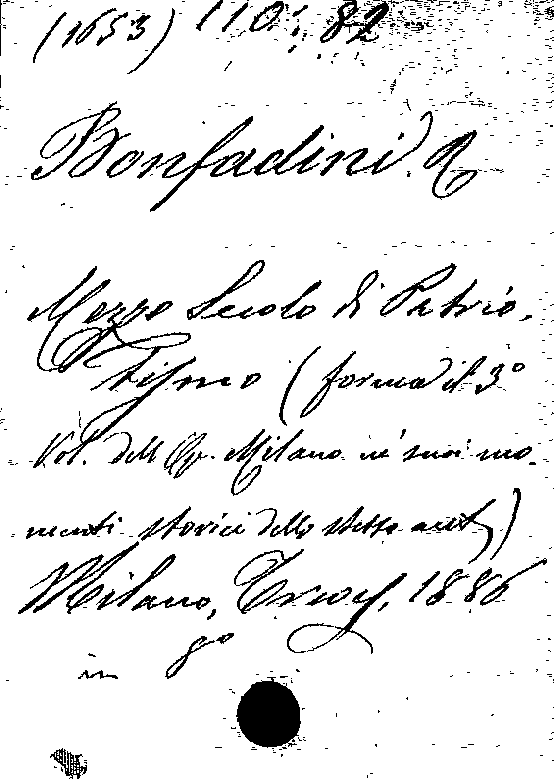 (1653) 110. 82
Bonfadini R
Mezzo Secolo di Patrio-
tismo (forma il 3°
Vol. dell Op. Milano ne' suoi mo-
numenti storici dello stesso aut)
Milano, Treves, 1886
in 8°